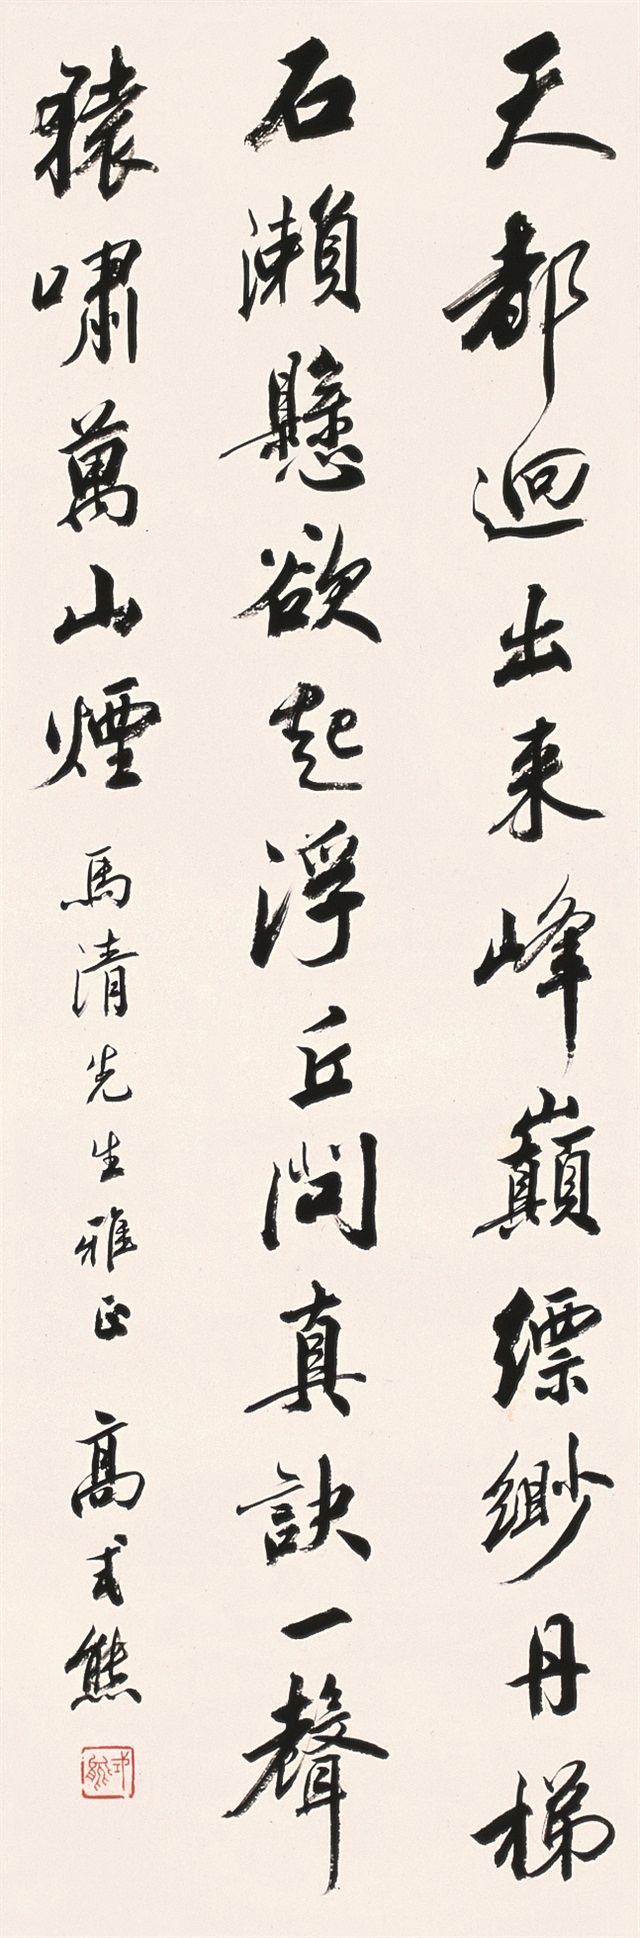 天都迥出来峰巔缥緲丹梯
石瀨懸欲起浮丘問真訣一聲
猿嘯萬山煙 馬清先生雅正 高式熊
式熊